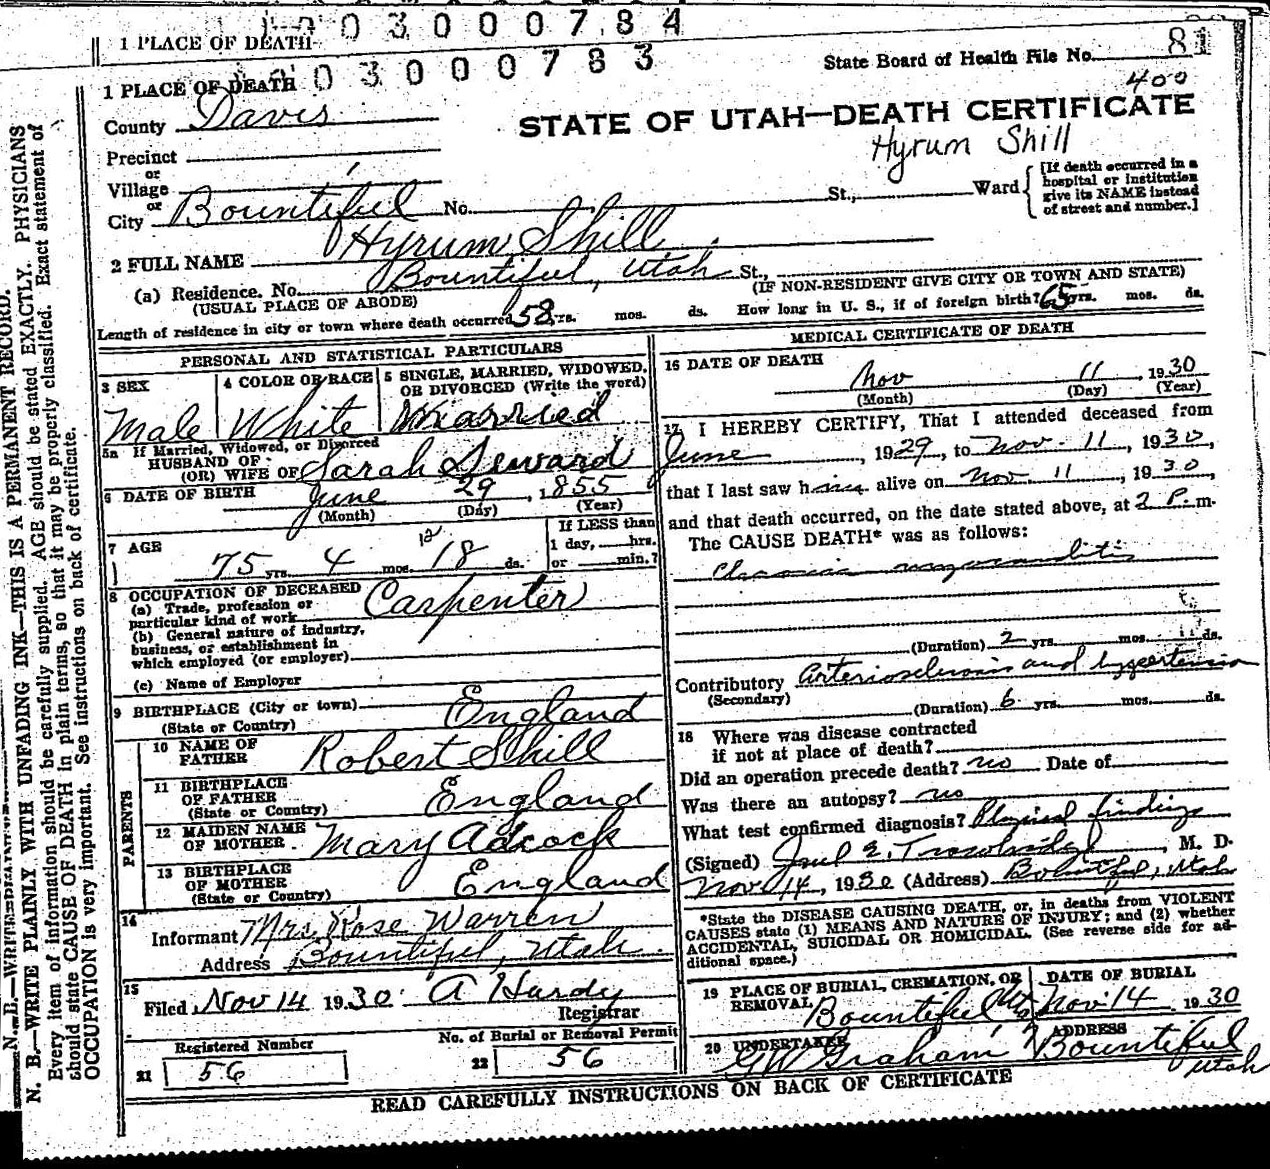 03000784
1 PLACE OF DEATH
03000783
State Board of Health File No. 81
400
1 PLACE OF DEATH
STATE OF UTAH—DEATH CERTIFICATE
County Davis
Hyrum Shill
Precinct
or
Village
or
City Bountiful No. St., Ward
[If death occurred in a
hospital or institution
give its NAME instead
of street and number.]
2 FULL NAME Hyrum Shill
(a) Residence. No. Bountiful, Utah St.,
(USUAL PLACE OF ABODE)
(IF NON-RESIDENT GIVE CITY OR TOWN AND STATE)
Length of residence in city or town where death occurred 58 yrs. mos. ds. How long in U. S., if of foreign birth? 65 yrs. mos. ds.
PERSONAL AND STATISTICAL PARTICULARS
3 SEX
Male
4 COLOR OR RACE
White
5 SINGLE, MARRIED, WIDOWED,
OR DIVORCED (Write the word)
Married
5a If Married, Widowed, or Divorced
HUSBAND OF
(OR) WIFE OF Sarah Seward
6 DATE OF BIRTH June 29, 1855
(Month) (Day) (Year)
7 AGE
75 yrs. 4 mos. 18 ds.
12
If LESS than
1 day, hrs.
or min.?
8 OCCUPATION OF DECEASED
(a) Trade, profession or
particular kind of work Carpenter
(b) General nature of industry,
business, or establishment in
which employed (or employer)
(c) Name of Employer
9 BIRTHPLACE (City or town)
(State or Country) England
PARENTS
10 NAME OF
FATHER Robert Shill
11 BIRTHPLACE
OF FATHER
(State or Country) England
12 MAIDEN NAME
OF MOTHER Mary Adcock
13 BIRTHPLACE
OF MOTHER
(State or Country) England
14
Informant Mrs. Rose Warren
Address Bountiful, Utah.
15
Filed Nov 14 1930. A Hardy
Registrar
Registered Number
21 56
No. of Burial or Removal Permit
22 56
MEDICAL CERTIFICATE OF DEATH
16 DATE OF DEATH
Nov 11, 1930
(Month) (Day) (Year)
17 I HEREBY CERTIFY, That I attended deceased from
June, 1929, to Nov. 11, 1930,
that I last saw him alive on Nov. 11, 1930,
and that death occurred, on the date stated above, at 2 P.m.
The CAUSE DEATH* was as follows:
Chronic myocarditis
(Duration) 2 yrs. mos. ds.
Contributory arteriosclerosis and hypertension
(Secondary)
(Duration) 6 yrs. mos. ds.
18 Where was disease contracted
if not at place of death?
Did an operation precede death? no Date of
Was there an autopsy? no
What test confirmed diagnosis? Physical findings
(Signed) M. D.
Nov 14, 1930 (Address) Bountiful, Utah
*State the DISEASE CAUSING DEATH, or, in deaths from VIOLENT
CAUSES state (1) MEANS AND NATURE OF INJURY; and (2) whether
ACCIDENTAL, SUICIDAL OR HOMICIDAL. (See reverse side for ad-
ditional space.)
19 PLACE OF BURIAL, CREMATION, OR
REMOVAL Bountiful Uta
DATE OF BURIAL
Nov. 14 1930
20 UNDERTAKER
G W Graham
ADDRESS
Bountiful
Utah
READ CAREFULLY INSTRUCTIONS ON BACK OF CERTIFICATE
N. B.—WRITE PLAINLY WITH UNFADING INK—THIS IS A PERMANENT RECORD.
Every item of information should be carefully supplied. AGE should be stated EXACTLY. PHYSICIANS
should state CAUSE OF DEATH in plain terms, so that it may be properly classified. Exact statement of
OCCUPATION is very important. See instructions on back of certificate.